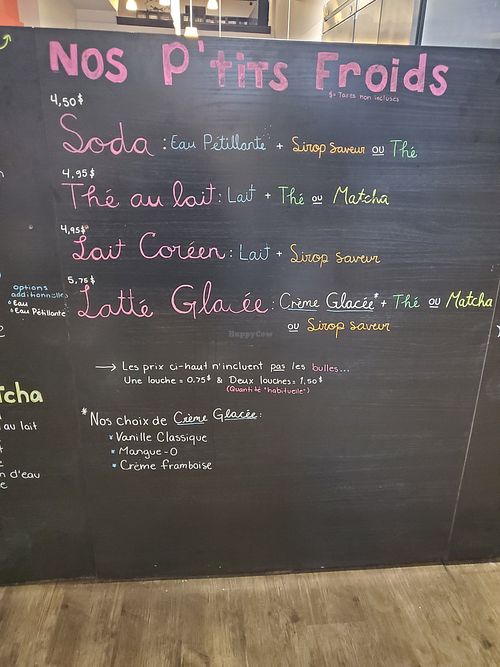 Nos P'tits Froids
$ = Taxes non incluses
4,50$
Soda : Eau Pétillante + Sirop saveur ou Thé
4,95$
Thé au lait : Lait + Thé ou Matcha
4,95$
Lait Coréen : Lait + Sirop saveur
5,75$
Latté Glacée : Crème Glacée* + Thé ou Matcha
ou Sirop saveur
options
additionnelles
Eau
Eau Pétillante
→ Les prix ci-haut n'incluent pas les bulles...
Une louche = 0.75$ & Deux louches = 1,50$
(Quantité "habituelle")
*Nos choix de Crème Glacée:
* Vanille Classique
* Mangue-O
* Crème framboise
tcha
au lait
n d'eau
HappyCow